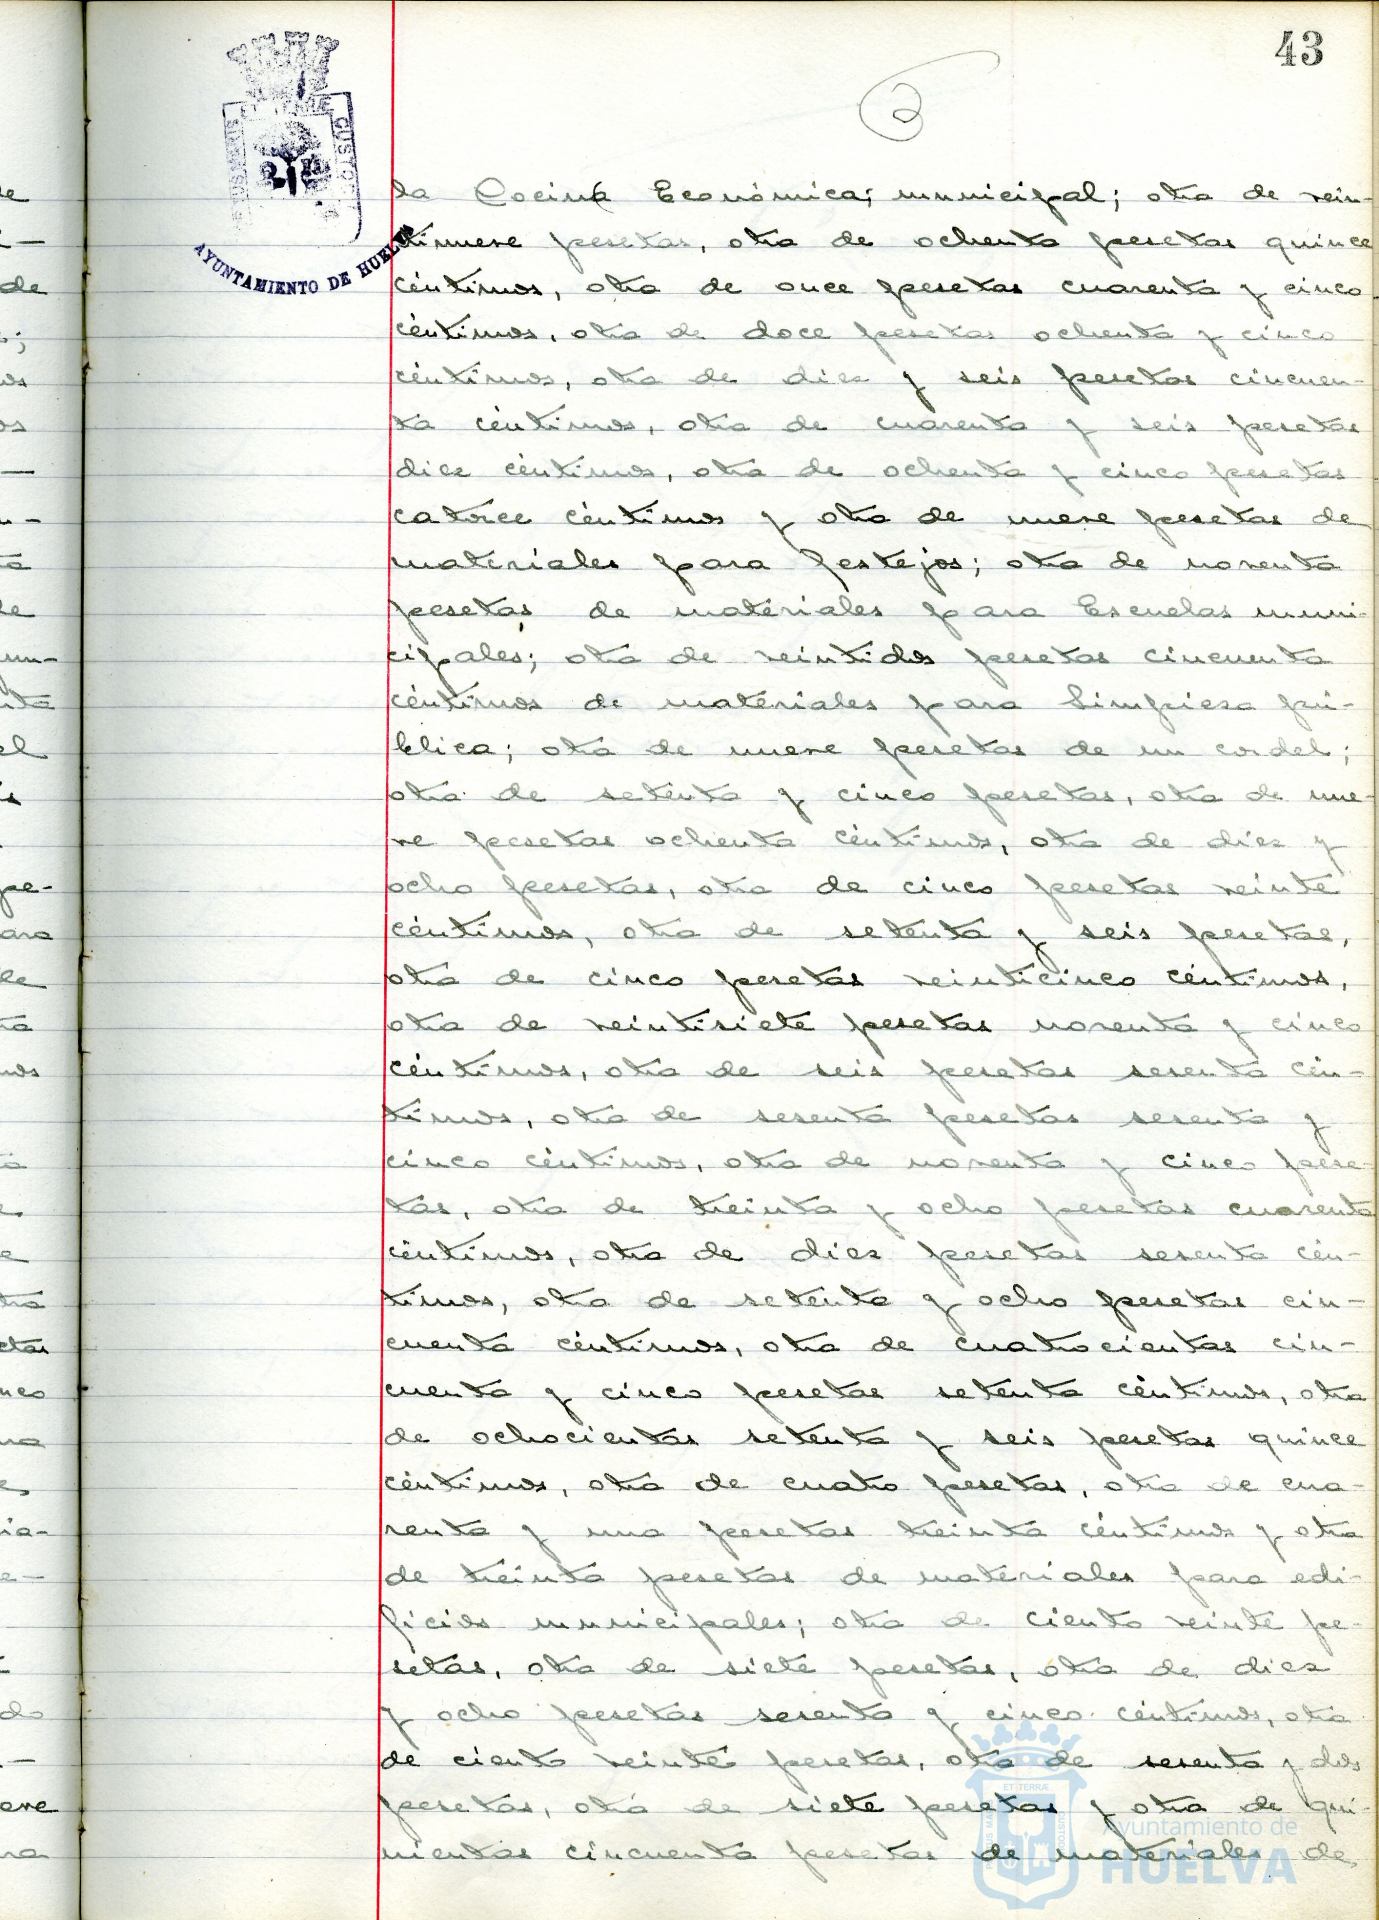 43
AYUNTAMIENTO DE HUELVA
la Cocina Económica; municipal; otra de vein-
tinueve pesetas, otra de ochenta pesetas quince
céntimos, otra de once pesetas cuarenta y cinco
céntimos, otra de doce pesetas ochenta y cinco
céntimos, otra de diez y seis pesetas cincuen-
ta céntimos, otra de cuarenta y seis pesetas
diez céntimos, otra de ochenta y cinco pesetas
catorce céntimos y otra de nueve pesetas de
materiales para festejos; otra de noventa
pesetas de materiales para Escuelas muni-
cipales; otra de veintidos pesetas cincuenta
céntimos de materiales para limpieza pú-
blica; otra de nueve pesetas de un cordel;
otra de setenta y cinco pesetas, otra de nue-
ve pesetas ochenta céntimos, otra de diez y
ocho pesetas, otra de cinco pesetas veinte
céntimos, otra de setenta y seis pesetas,
otra de cinco pesetas veinticinco céntimos,
otra de veintisiete pesetas noventa y cinco
céntimos, otra de seis pesetas sesenta cén-
timos, otra de sesenta pesetas sesenta y
cinco céntimos, otra de noventa y cinco pese-
tas, otra de treinta y ocho pesetas cuarenta
céntimos, otra de diez pesetas sesenta cén-
timos, otra de setenta y ocho pesetas cin-
cuenta céntimos, otra de cuatrocientas cin-
cuenta y cinco pesetas setenta céntimos, otra
de ochocientas setenta y seis pesetas quince
céntimos, otra de cuatro pesetas, otra de cua-
renta y una pesetas treinta céntimos y otra
de treinta pesetas de materiales para edi-
ficios municipales; otra de ciento veinte pe-
setas, otra de siete pesetas, otra de diez
y ocho pesetas sesenta y cinco céntimos, otra
de ciento veinte pesetas, otra de sesenta y dos
pesetas, otra de siete pesetas y otra de qui-
nientas cincuenta pesetas de materiales de
Ayuntamiento de
HUELVA